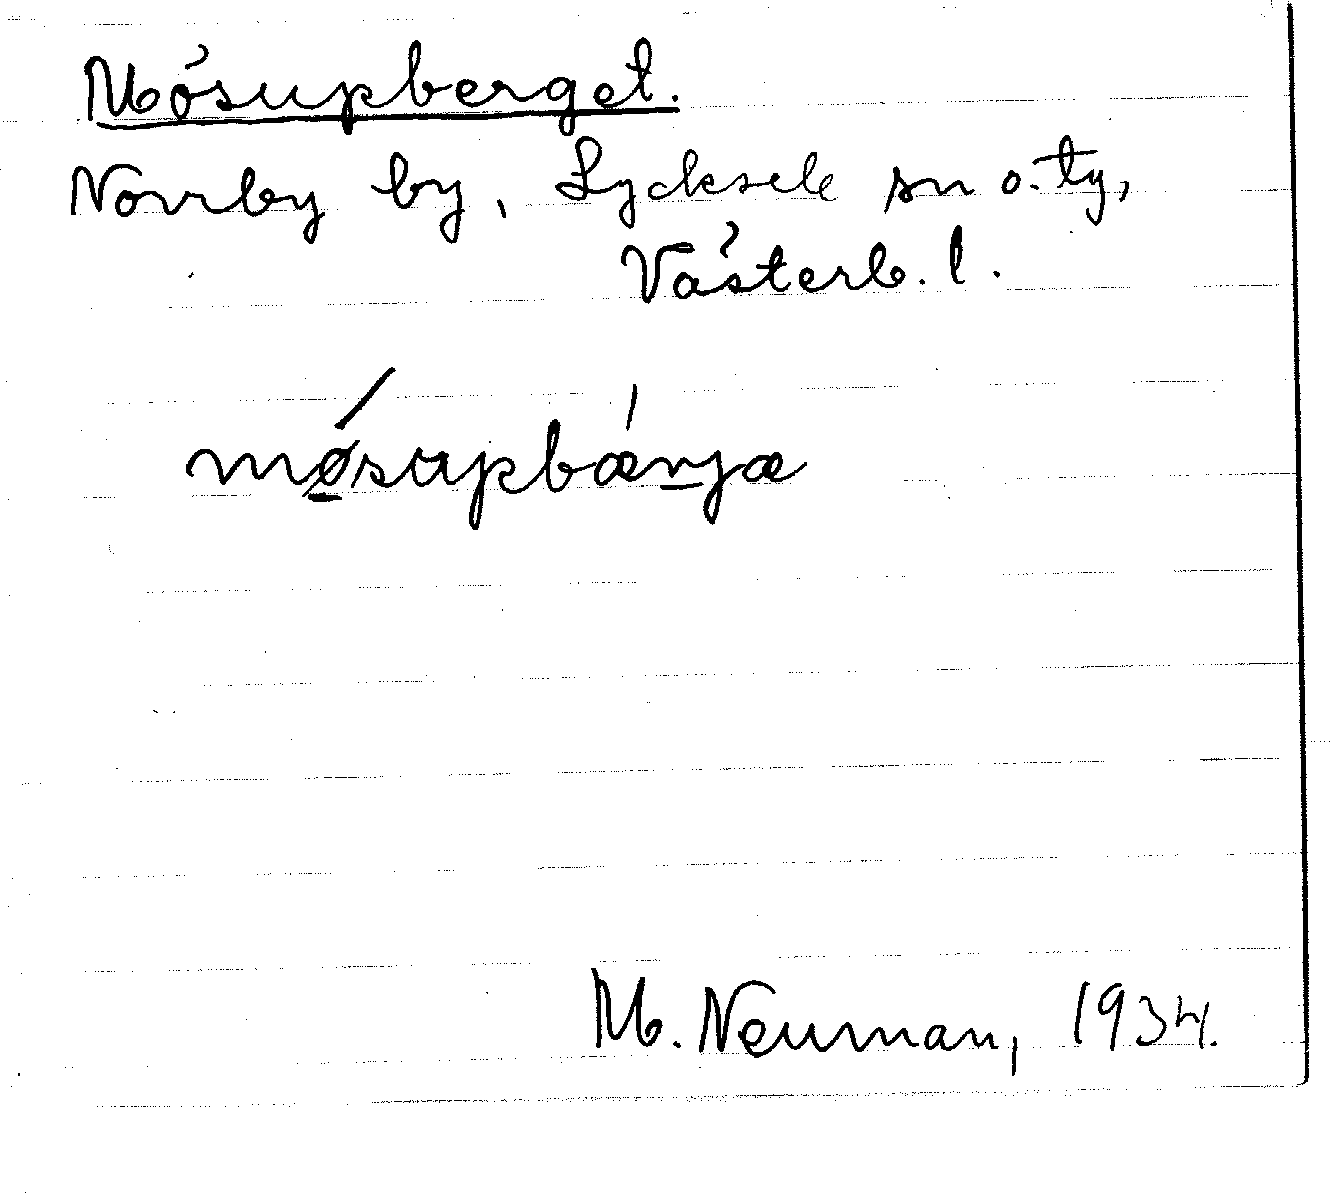 Mösupberget.
Norrby by, Lycksele sn o. ty,
Västerb. l.
mǿ̱supbǽṉjæ
M. Neuman, 1934.